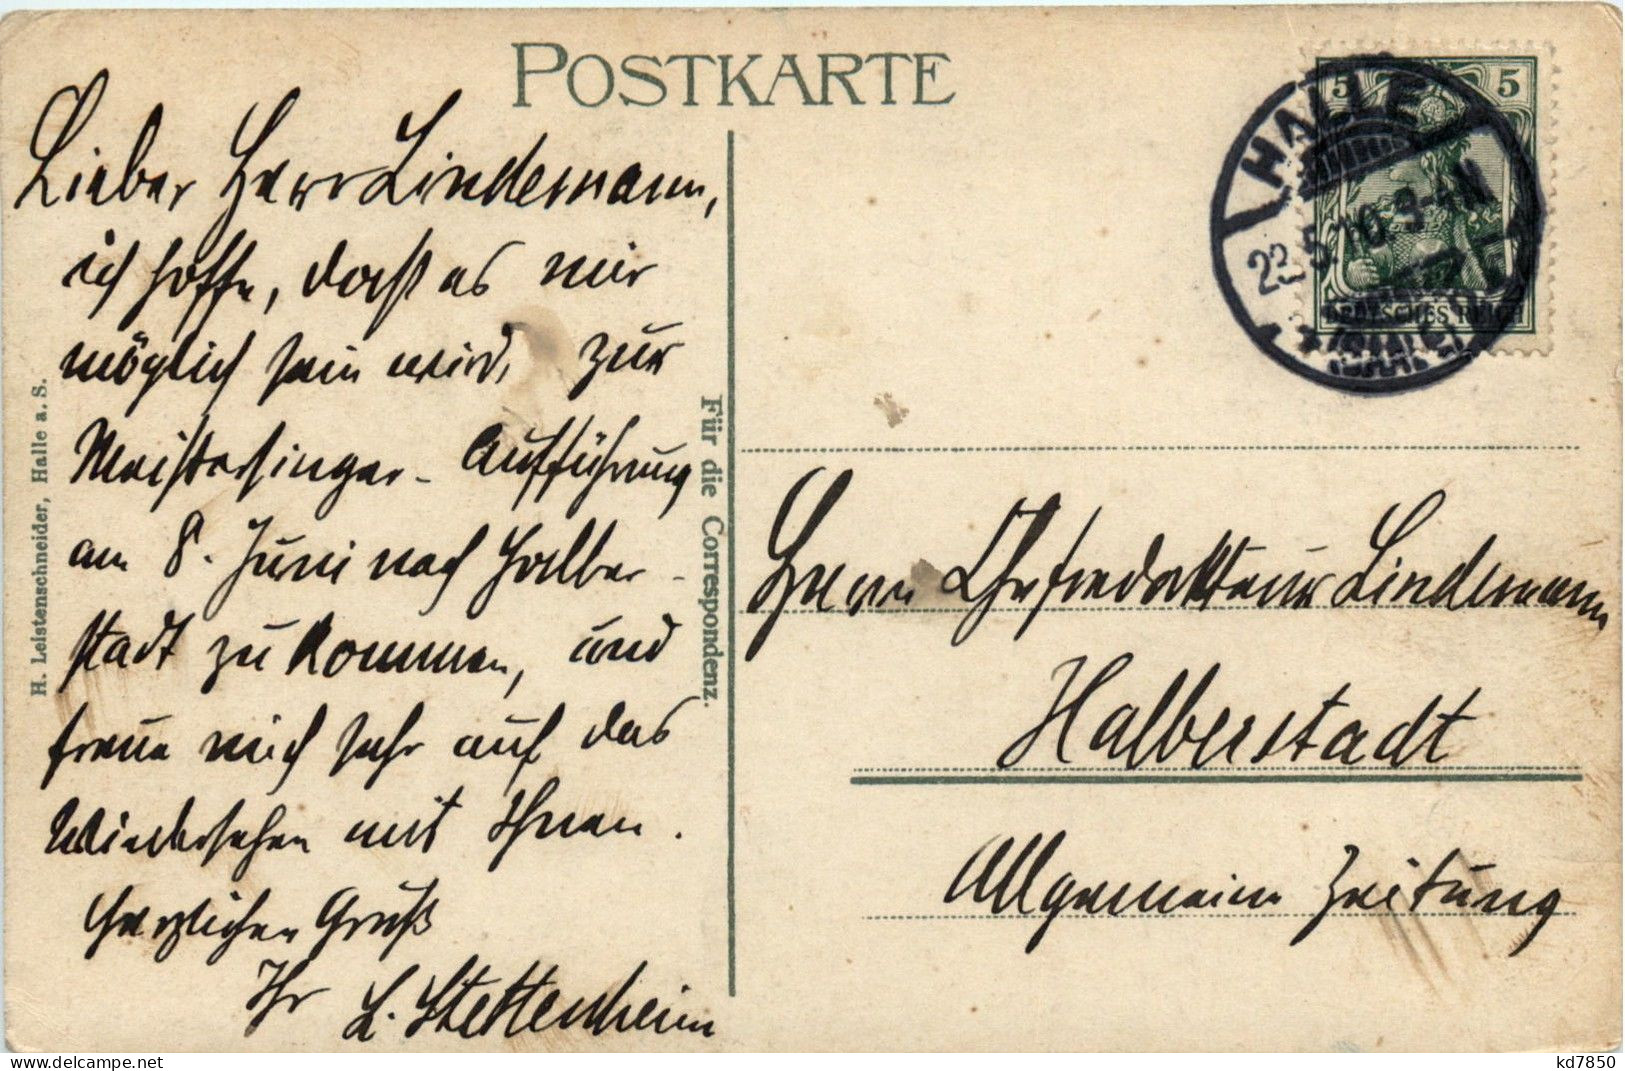 POSTKARTE
Lieber Herr Lindemann,
ich hoffe, daß es mir
möglich sein wird, zur
Meistersinger-Aufführung
am 8. Juni nach Halber-
stadt zu kommen, und
freue mich sehr auf das
Wiedersehen mit Ihnen.
Herzlichen Gruß
Ihr L. Stettenheim
H. Leistenschneider, Halle a. S.
Für die Correspondenz.
5 5
DEUTSCHES REICH
HALLE
22.5.10. 3-4N
(SAALE)
Herrn Chefredakteur Lindemann
Halberstadt
Allgemeine Zeitung
delcampe.net
kd7850